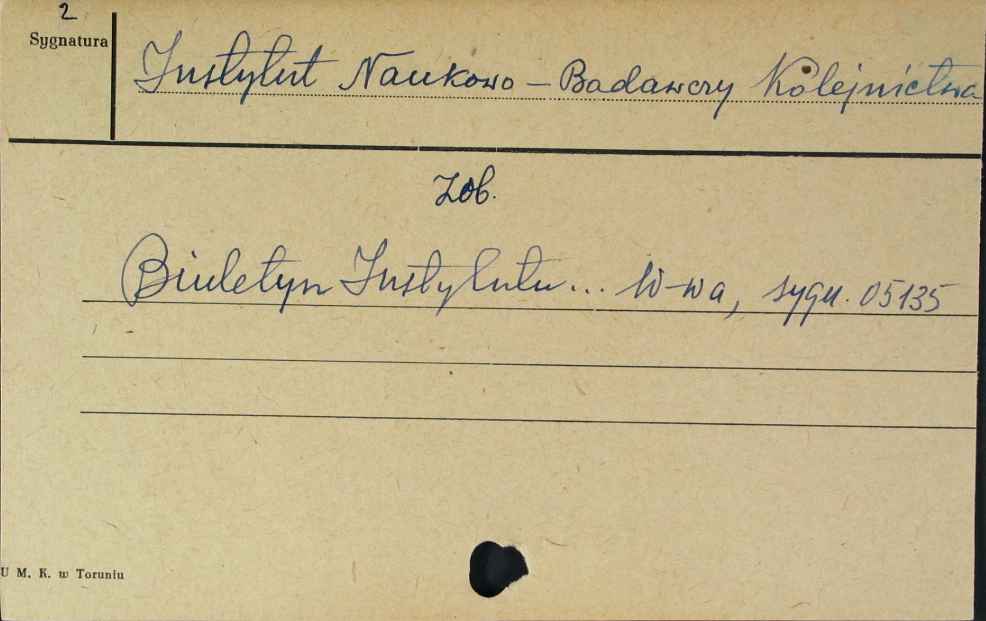 2
Sygnatura
Instytut Naukowo - Badawczy Kolejnictwa
Zob.
Biuletyn Instytutu... W-wa, sygn. 05135
U M. K. w Toruniu